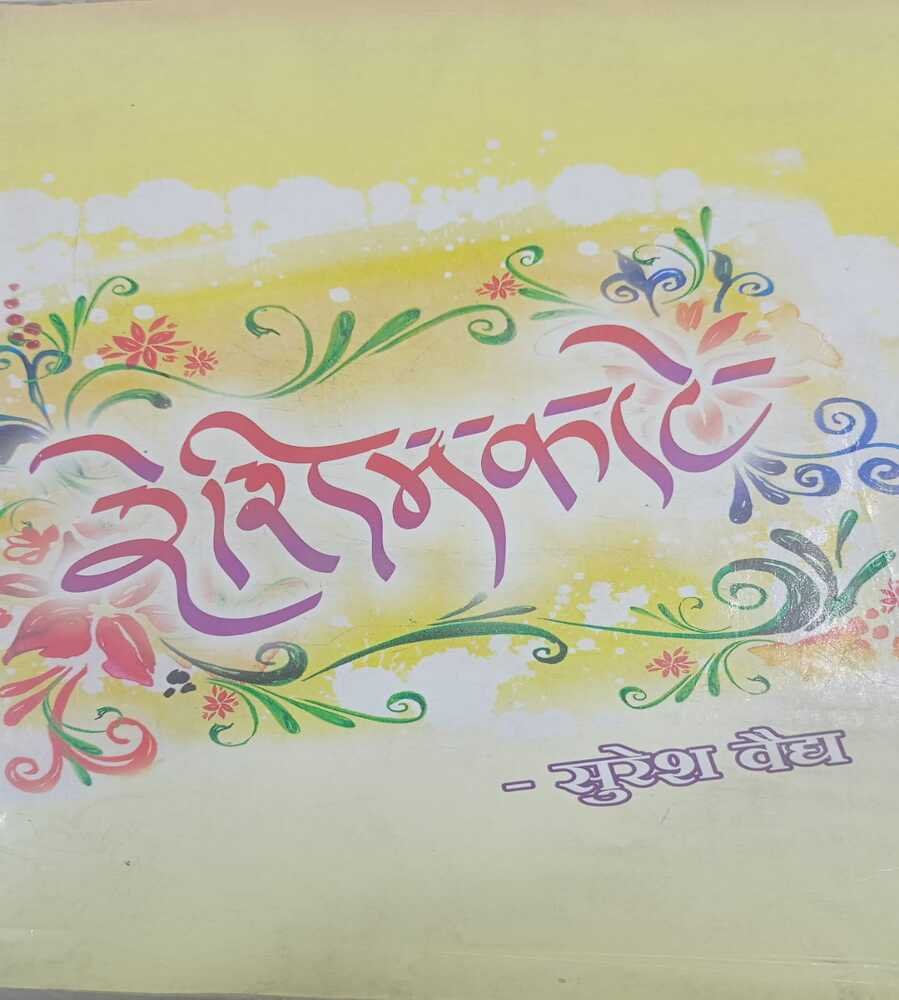 रेशिमकाटे
- सुरेश वैद्य